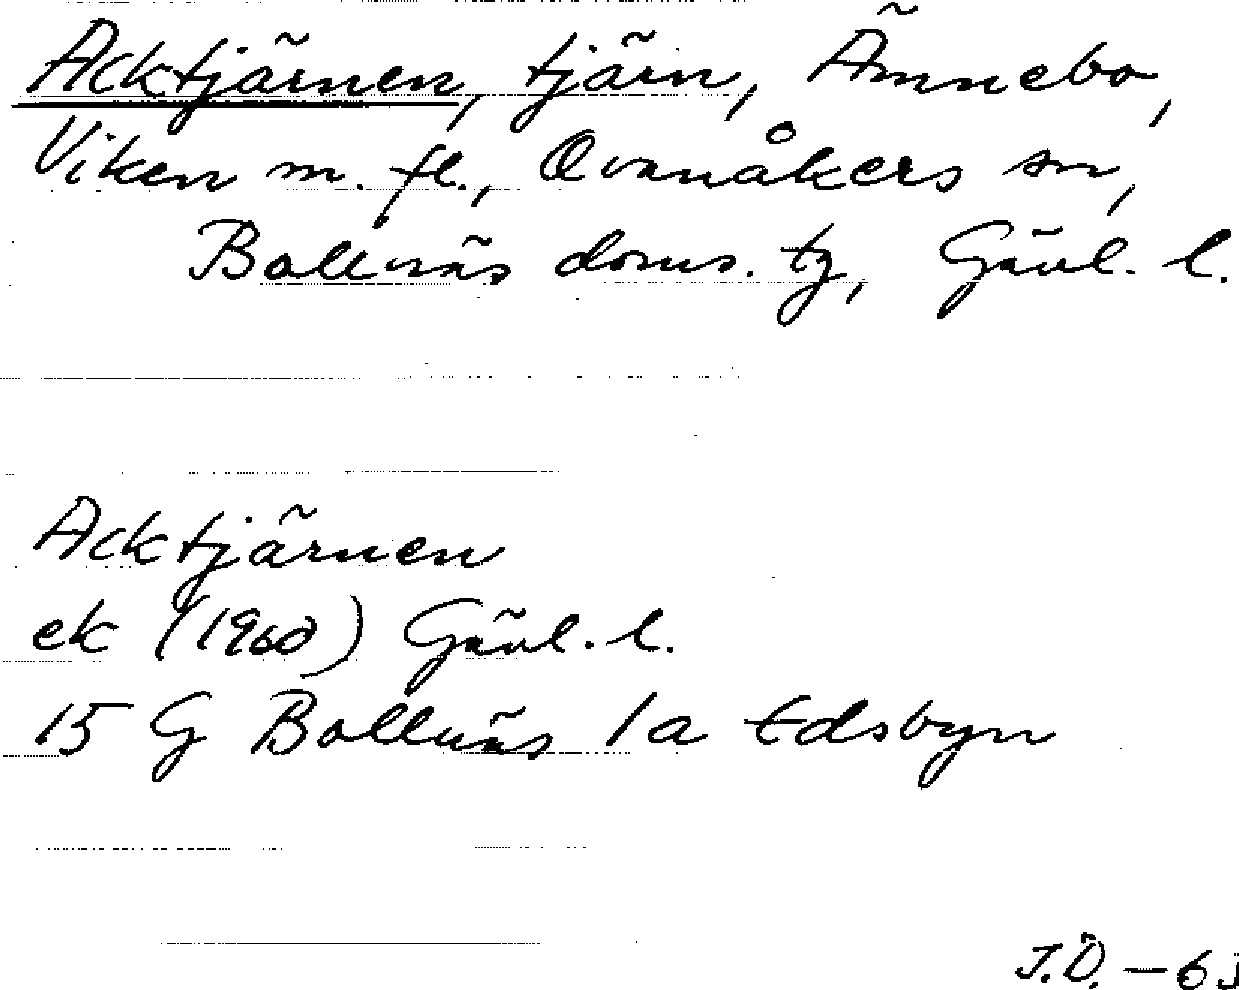 Acktjärnen, tjärn, Ämnebo,
Viken m. fl., Ovanåkers sn,
Bollnäs doms. tg, Gävl. l.
Acktjärnen
ek (1960) Gävl. l.
15 G Bollnäs 1a Edsbyn
J.Ö. – 6